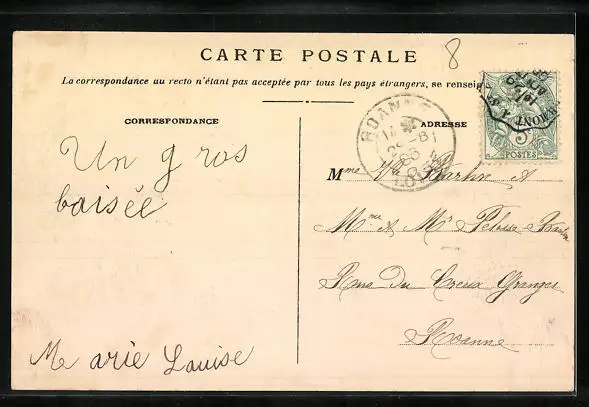 8
CARTE POSTALE
La correspondance au recto n'étant pas acceptée par tous les pays étrangers, se renseig
CORRESPONDANCE
ADRESSE
ROANNE
POSTES
Un gros
baisée
Marie Louise
Mme Vve Bartin A
Mme & Mr
Rue Du Creux Granger
Roanne